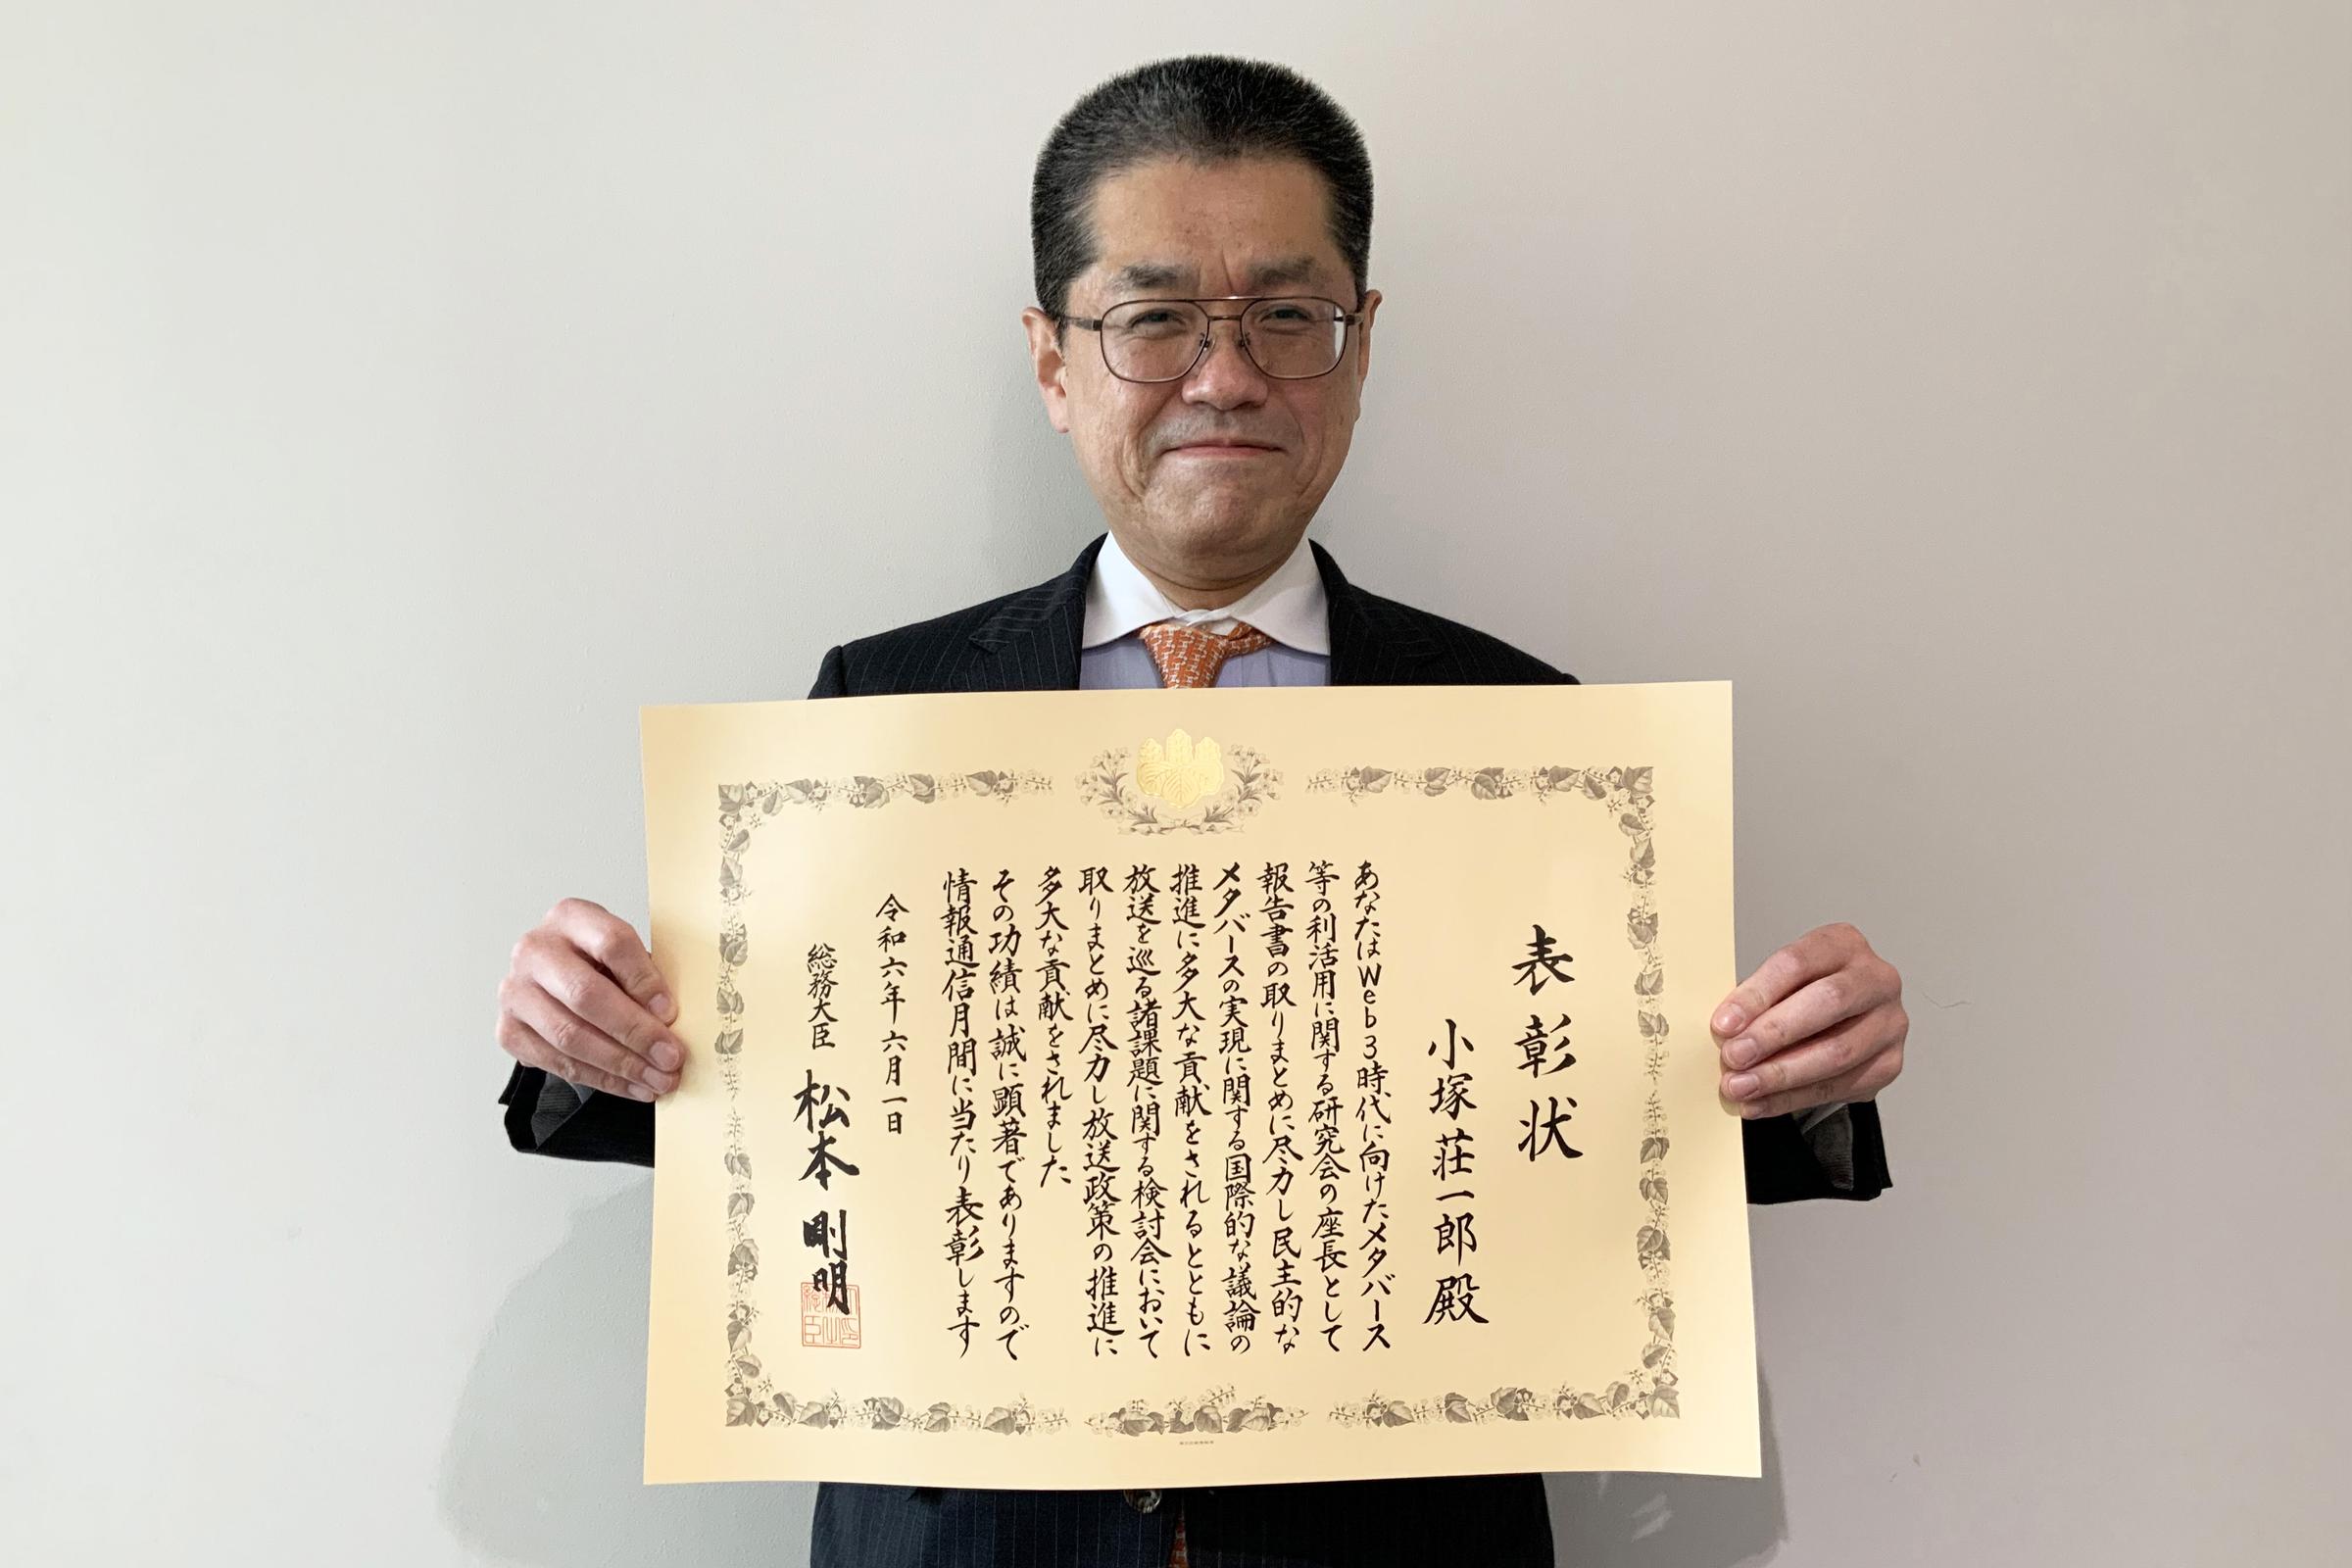 表彰状
小塚荘一郎殿
あなたはWeb3時代に向けたメタバース
等の利活用に関する研究会の座長として
報告書の取りまとめに尽力し民主的な
メタバースの実現に関する国際的な議論の
推進に多大な貢献をされるとともに
放送を巡る諸課題に関する検討会において
取りまとめに尽力し放送政策の推進に
多大な貢献をされました
その功績は誠に顕著でありますので
情報通信月間に当たり表彰します
令和六年六月一日
総務大臣 松本剛明